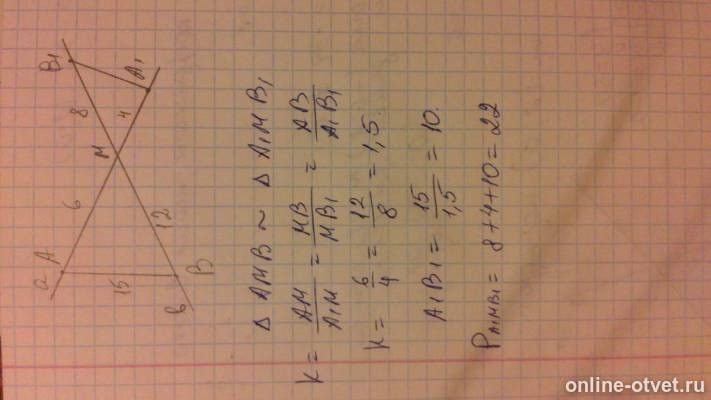 a A 6 M 4 A₁
b B 12 8 B₁
15
Δ AMB ~ Δ A₁MB₁
K = AM/A₁M = MB/MB₁ = AB/A₁B₁
K = 6/4 = 12/8 = 1,5.
A₁B₁ = 15/1,5 = 10.
P A₁MB₁ = 8+4+10 = 22
online-otvet.ru